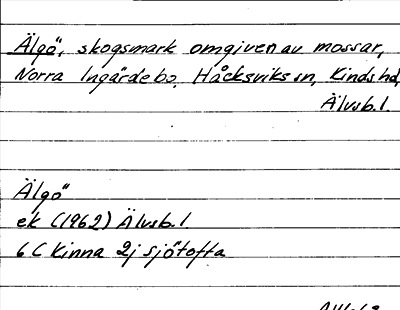 Älgö, skogsmark omgiven av mossar,
Norra Ingärdebo, Håcksviks sn, Kinds hd,
Älvsb.l.
Älgö
ek (1962) Älvsb.l.
6 C Kinna 2j sjötofta